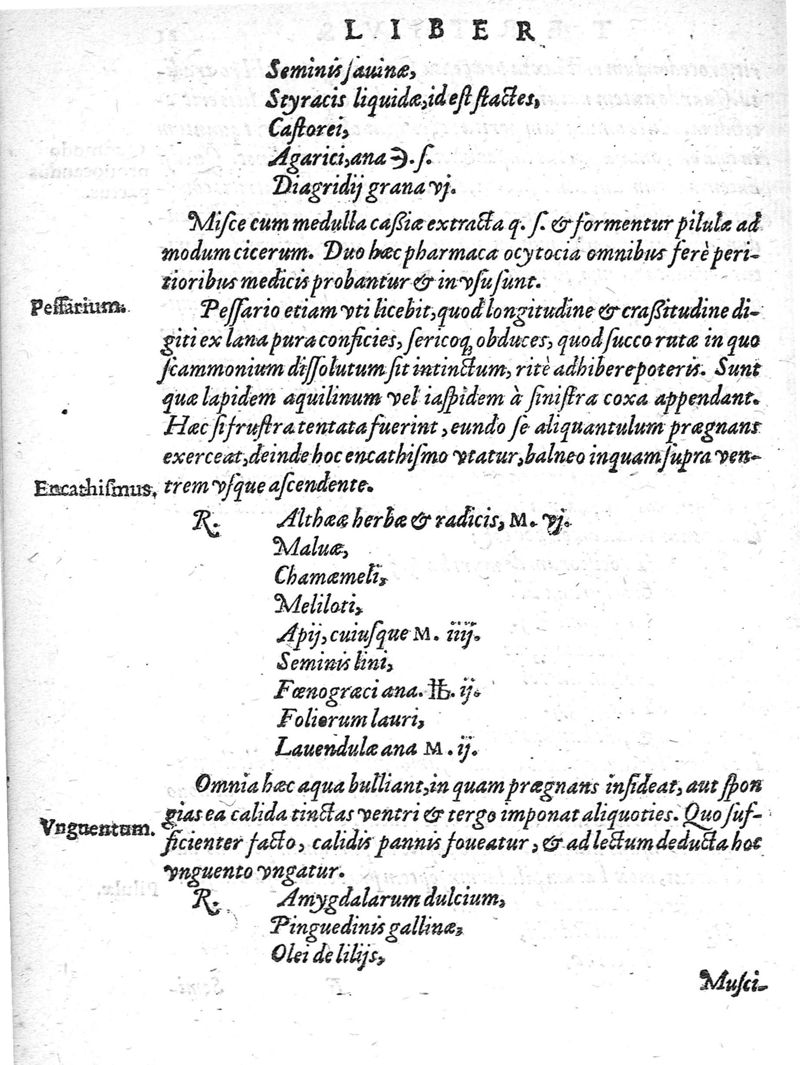 LIBER
Seminis ſauinæ,
Styracis liquidæ, id eſt ſtactes,
Caſtorei,
Agarici, ana ℈. ſ.
Diagridij grana vj.
Miſce cum medulla caßiæ extracta q. ſ. & formentur pilulæ ad
modum cicerum. Duo hæc pharmaca ocytocia omnibus ferè peri-
tioribus medicis probantur & in vſu ſunt.
Peſſarium.
Peſſario etiam vti licebit, quod longitudine & craßitudine di-
giti ex lana pura conficies, ſericoq; obduces, quod ſucco rutæ in quo
ſcammonium diſſolutum ſit intinctum, ritè adhibere poteris. Sunt
quæ lapidem aquilinum vel iaſpidem à ſiniſtra coxa appendant.
Hæc ſi fruſtra tentata fuerint, eundo ſe aliquantulum prægnans
exerceat, deinde hoc encathiſmo vtatur, balneo inquam ſupra ven-
Encathiſmus.
trem vſque aſcendente.
℞. Altheæ herbæ & radicis, M. vj.
Maluæ,
Chamæmeli,
Meliloti,
Apij, cuiuſque M. iiij.
Seminis lini,
Fœnogræci ana. ℔. ij.
Foliorum lauri,
Lauendulæ ana M. ij.
Omnia hæc aqua bulliant, in quam prægnans inſideat, aut ſpon
gias ea calida tinctas ventri & tergo imponat aliquoties. Quo ſuf-
Vnguentum.
ficienter facto, calidis pannis foueatur, & ad lectum deducta hoc
vnguento vngatur.
℞. Amygdalarum dulcium,
Pinguedinis gallinæ,
Olei de lilijs,
Muſci-